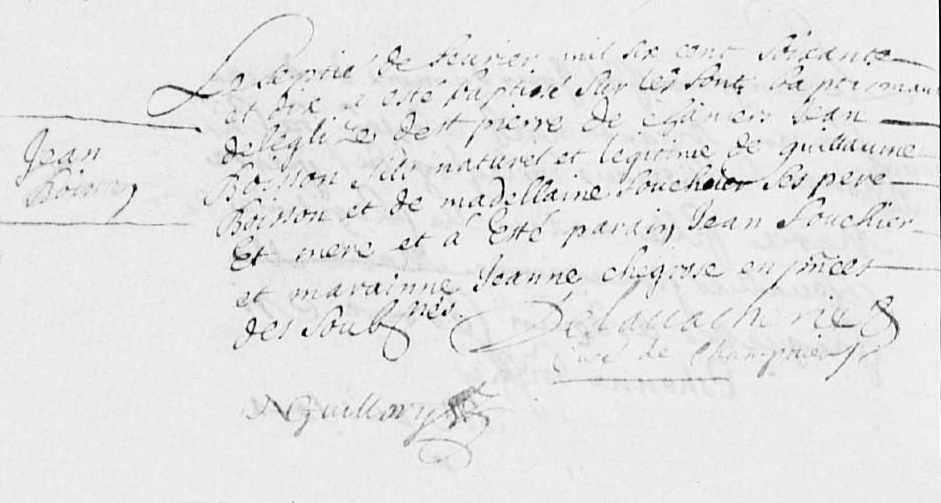 Jean
Boisson
Le septie de feurier mil six cent soixante
et dix a esté baptisé sur les fonts baptismaux
de leglize de st pierre de Jean
Boisson fils naturel et legitime de guillaume
Boisson et de madellaine souchier ses pere
Et mere et a Esté parain Jean souchier
et marainne Jeanne chegrose en pnces
des soubsnes.
Delauacherie
Curé de Champniers
Guillory